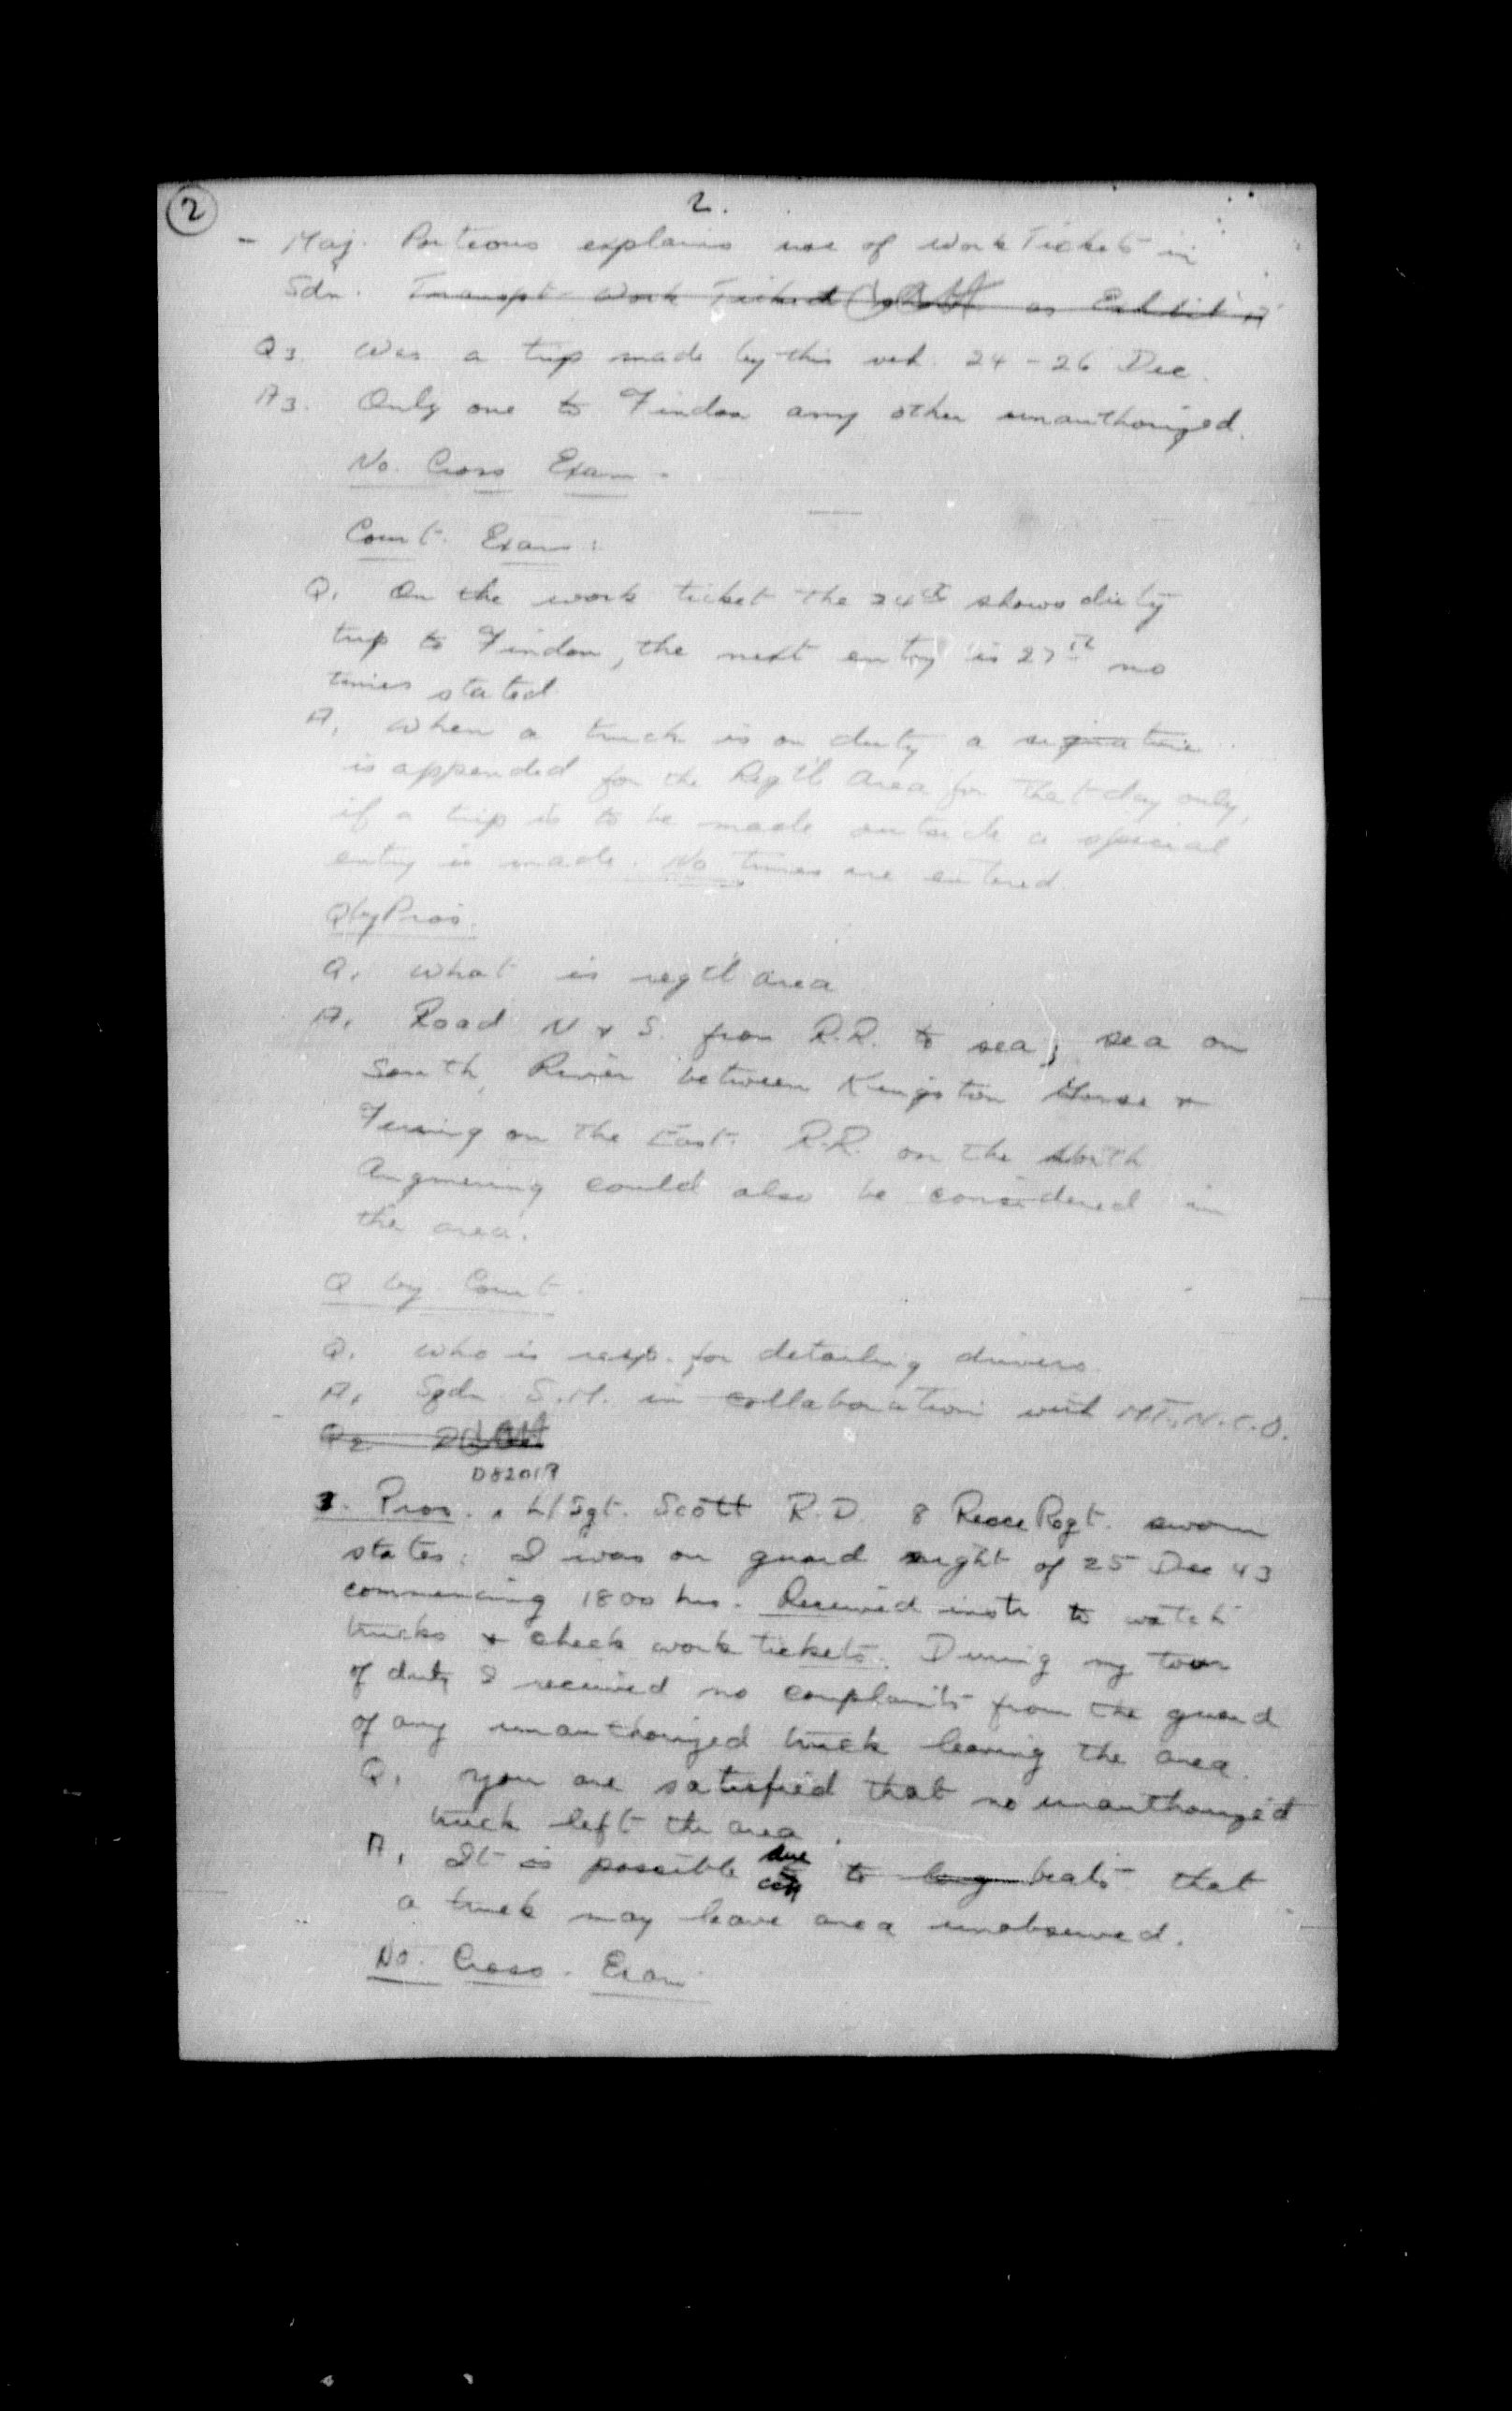 2
2.
- Maj. Porteous explains use of Work Tickets in
Sdn. Transpt Work Ticket as Exhibit
Q3. Was a trip made by this veh. 24 - 26 Dec.
A3. Only one to Findon any other unauthorized.
No. Cross Exam -
Court. Exam:
Q. On the work ticket the 24th shows duty
trip to Findon, the next entry is 27th no
times stated
A. When a truck is on duty a signature
is appended for the Reg'tl Area for that day only,
if a trip is to be made outside a special
entry is made. No times are entered.
Q by Pros.
Q. What is regtl area
A. Road N & S. from R.R. to sea; sea on
South, River between Kingston Gorse &
Ferring on the East. R.R. on the North
Angmering could also be considered in
the area.
Q by Court.
Q. Who is resp. for detailing drivers.
A. Sqdn S.M. in collaboration with M.T. N.C.O.
Q2
D82019
3. Pros. L/Sgt. Scott R.D. 8 Recce Regt. sworn
states: I was on guard night of 25 Dec 43
commencing 1800 hrs. Received instr to watch
trucks & check work tickets. During my tour
of duty I received no complaints from the guard
of any unauthorized truck leaving the area.
Q. You are satisfied that no unauthorized
truck left the area.
A. It is possible due to long beats that
a truck may leave area unobserved.
No. Cross. Exam